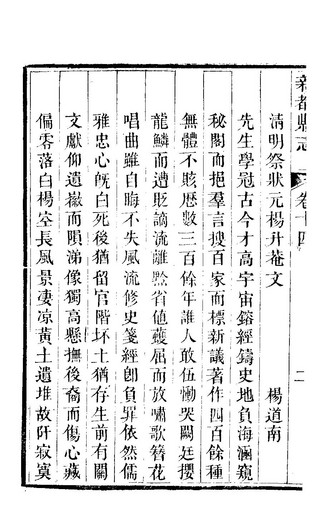 新都縣志
卷十四
二
清明祭狀元楊升菴文
楊道南
先生學冠古今才高宇宙鎔經鑄史地負海涵窺
秘閣而挹羣言搜百家而標新議著作四百餘種
無體不賅歷數三百餘年誰人敢伍慟哭闕廷攖
龍鱗而遭貶謫流離黔省佹蠖屈而放嘯歌簪花
唱曲雖自晦不失風流修史箋經卽負罪依然儒
雅忠心旣白死後猶留官階坏土猶存生前有關
文獻仰遺徽而隕涕像獨高懸撫後裔而傷心藏
偏零落白楊室長風景淒凉黃土遺堆故阡寂寞